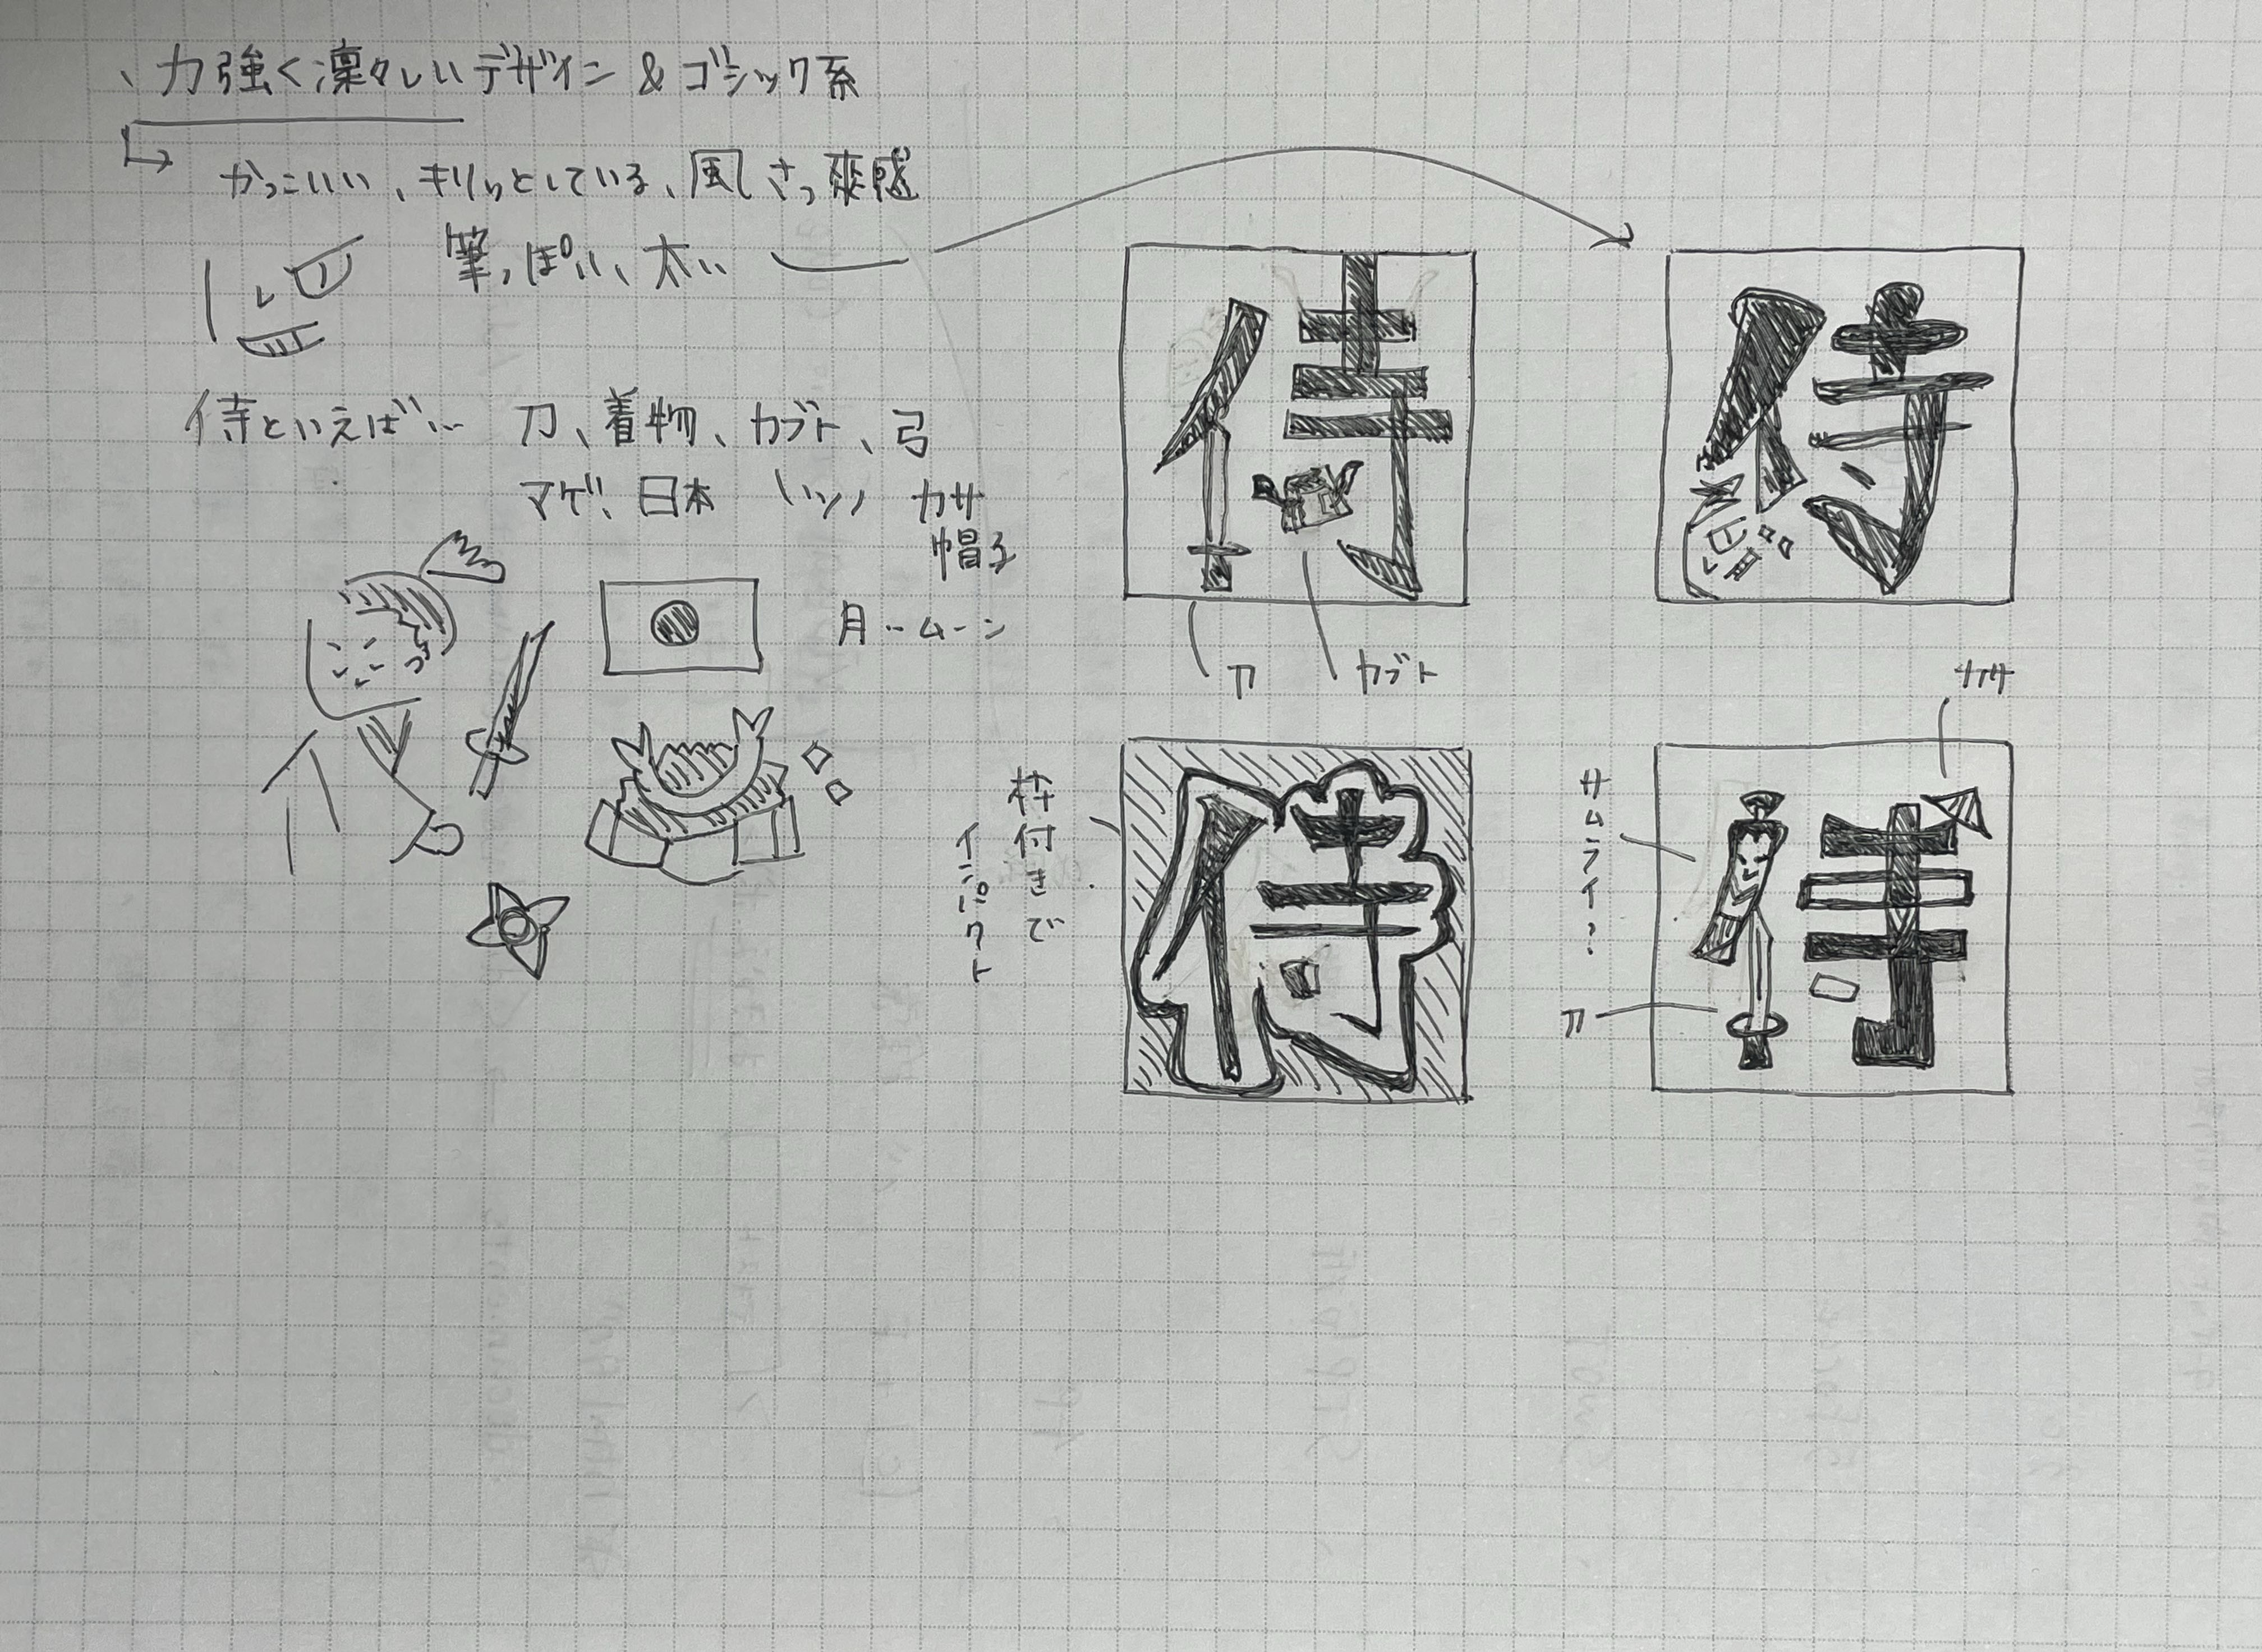 、力強く凛々しいデザイン & ゴシック系
かっこいい、キリッとしている、風、さっ爽感
筆っぽい、太い
侍といえば… 刀、着物、カブト、弓
マゲ、日本 カサ
帽子
月ームーン
侍
刀
カブト
侍
枠付きで
インパクト
侍
カサ
サムライ?
刀
侍